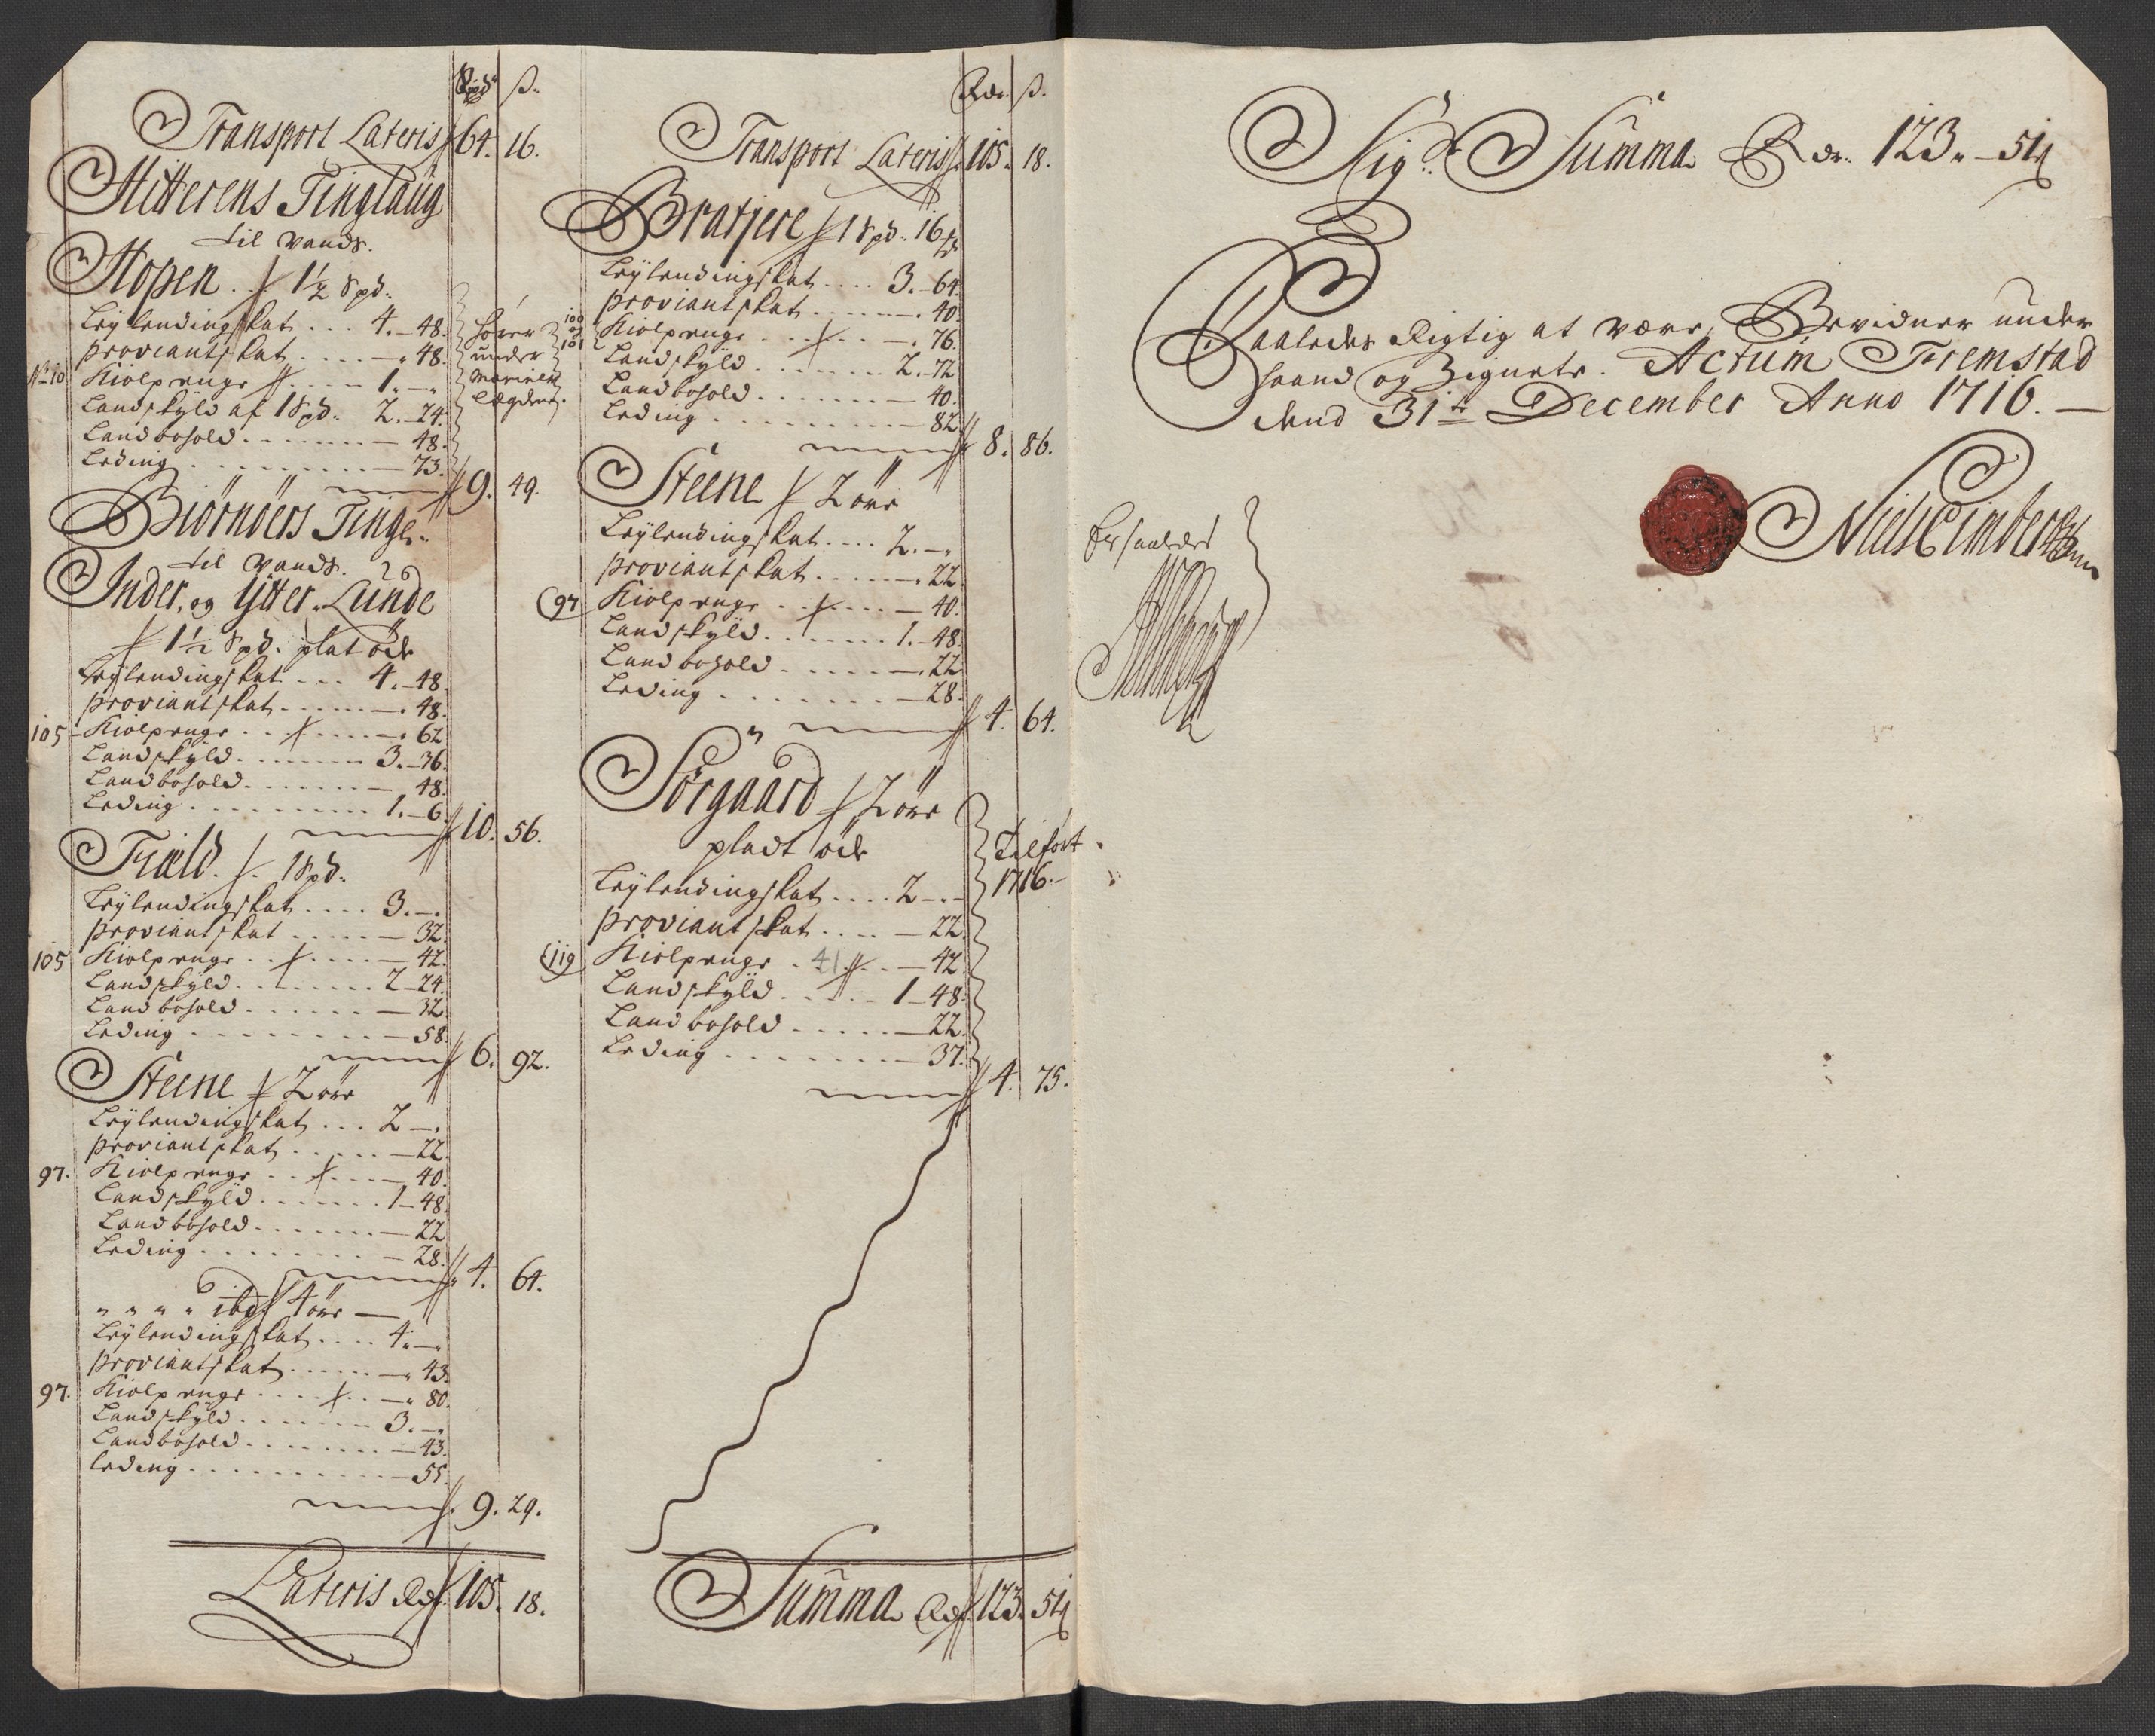 Rdr. ß.
Transport Lateris 64. 16.
Hitterens Tinglaug
til Vands.
Hopen. 1½ Spd.
Leÿlendingskat... 4.-48.
Proviantskat.......-.48.
No 10 Kiolpenge....... 1.-.
Landskÿld af 1 Spd. 2.-24.
Landbohold.......-48.
Leding..........-73.
hører
under
Marinens
Lægderne.
9. 49.
Biörnöers Tingl.
til Vands.
Inder, og Ÿtter Lunde
1½ Spd. plat öde
Leÿlendingskat... 4.-48.
Proviantskat.......-.48.
105 Kiolpenge.........-.62
Landskÿld........ 3.-36.
Landbohold.......-48.
Leding......... 1.-6.
10. 56.
Fiæld. 1 Spd.
Leÿlendingskat.... 3.-.
Proviantskat......-32.
105 Kiolpenge........-42.
Landskÿld........ 2-24.
Landbohold.......-32.
Leding..........-58.
6. 92.
Steene 2 öre
Leÿlendingskat... 2-.
Proviantskat......-22.
97. Kiolpenge........-40.
Landskÿld....... 1-48.
Landbohold.......-22
Leding.........-28.
4. 64.
" " " " ibd 4 öre-
Leÿlendingskat.... 4.-.
Proviantskat.......-.43.
97. Kiolpenge........-.80.
Landskÿld....... 3.-.
Landbohold........-43.
Leding..........-55.
9. 29.
Lateris Rdr. 105. 18.
Rdr. ß.
Transport Lateris 105. 18.
Bratjere 1 Spd. 16
Leÿlendingskat.... 3.-64.
Proviantskat.......-.40.
100 og 101 Kiolpenge........-.76.
Landskÿld........ 2.-72
Landbohold........-40.
Leding...........-82.
8. 86.
Steene 2 öre
Leÿlendingskat.... 2.-.
Proviantskat......-.22.
97 Kiolpenge........-40.
Landskÿld....... 1.-48.
Landbohold.......-.22
Leding.........-28.
4. 64.
Sörgaard 2 öre
pladt öde
Tilfört
1716.-
Leÿlendingskat.... 2-.-
Proviantskat.....-22.
119 Kiolpenge. 41....-42.
Landskÿld..... 1-48.
Landbohold.....-22.
Leding........-37.
4. 75.
Summa Rdr 123. 51
Sigr Summa Rdr. 123.-51
Saaledes Rigtig at være, Bevidner under
haand og Zignete. Actum Fremstad
dend 31te December Anno 1716.-